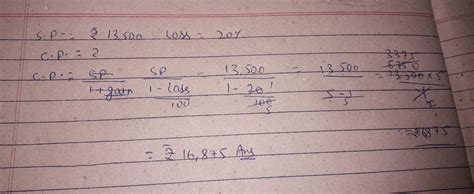 S.P. = ₹ 13,500 Loss = 20%
C.P. = 2
C.P. = SP/1+gain SP/1-loss/100 = 13,500/1-20/100 = 13,500/5-1/5 = 13,500 × 5/4
3375
6750
1
5
2
= 16875
= ₹ 16,875 Ans